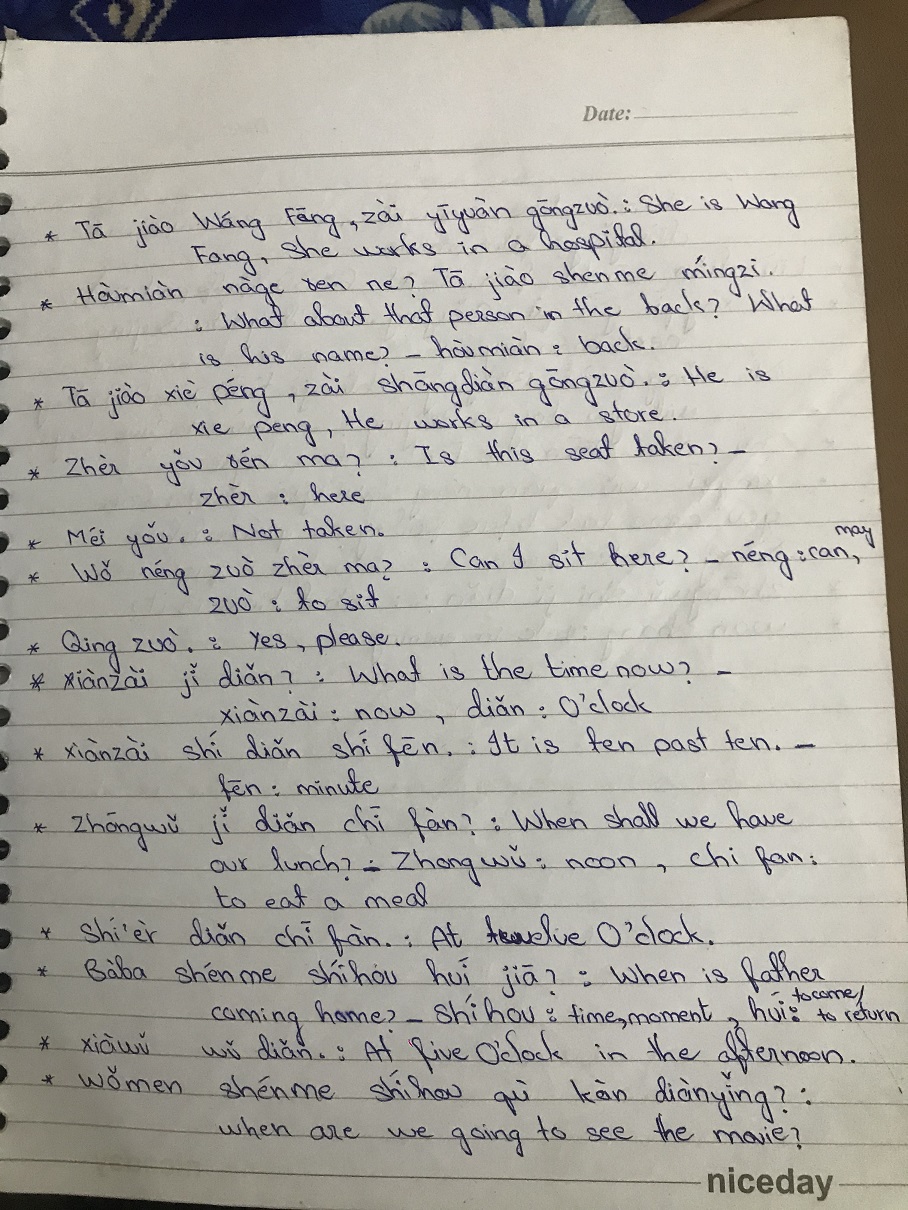 Date:
* Tā jiào Wáng Fāng, zài yīyuàn gōngzuò. : She is Wang
Fang, She works in a hospital.
* Hàumiàn nàge ren ne? Tā jiào shenme míngzi.
: What about that person in the back? What
is his name? – hòumiàn : back.
* Tā jiào xiè péng, zài shāngdiàn gōngzuò. : He is
xie peng, He works in a store.
* Zhèr yǒu rén ma? : Is this seat taken? –
zhèr : here
* Méi yǒu. : Not taken.
may
* Wǒ néng zuò zhèr ma? : Can I sit here? – néng : can,
zuò : to sit
* Qing zuò. : Yes, please.
* xiànzài jǐ diǎn? : What is the time now? –
xiànzài : now, diǎn : O'clock
* xiànzài shí diǎn shí fēn. : It is ten past ten. –
fēn : minute
* Zhōngwǔ jǐ diǎn chī fàn? : When shall we have
our lunch? – Zhongwǔ : noon, chi fan :
to eat a meal
* Shí'èr diǎn chī fàn. : At twelve O'clock.
* Bàba shénme shíhóu huí jiā? : When is father
to come/
coming home? – Shíhou : time, moment, huí : to return
* xiàwǔ wǔ diǎn. : At five O'clock in the afternoon.
* wǒmen shénme shíhou qù kàn diànyǐng? :
when are we going to see the movie?
niceday